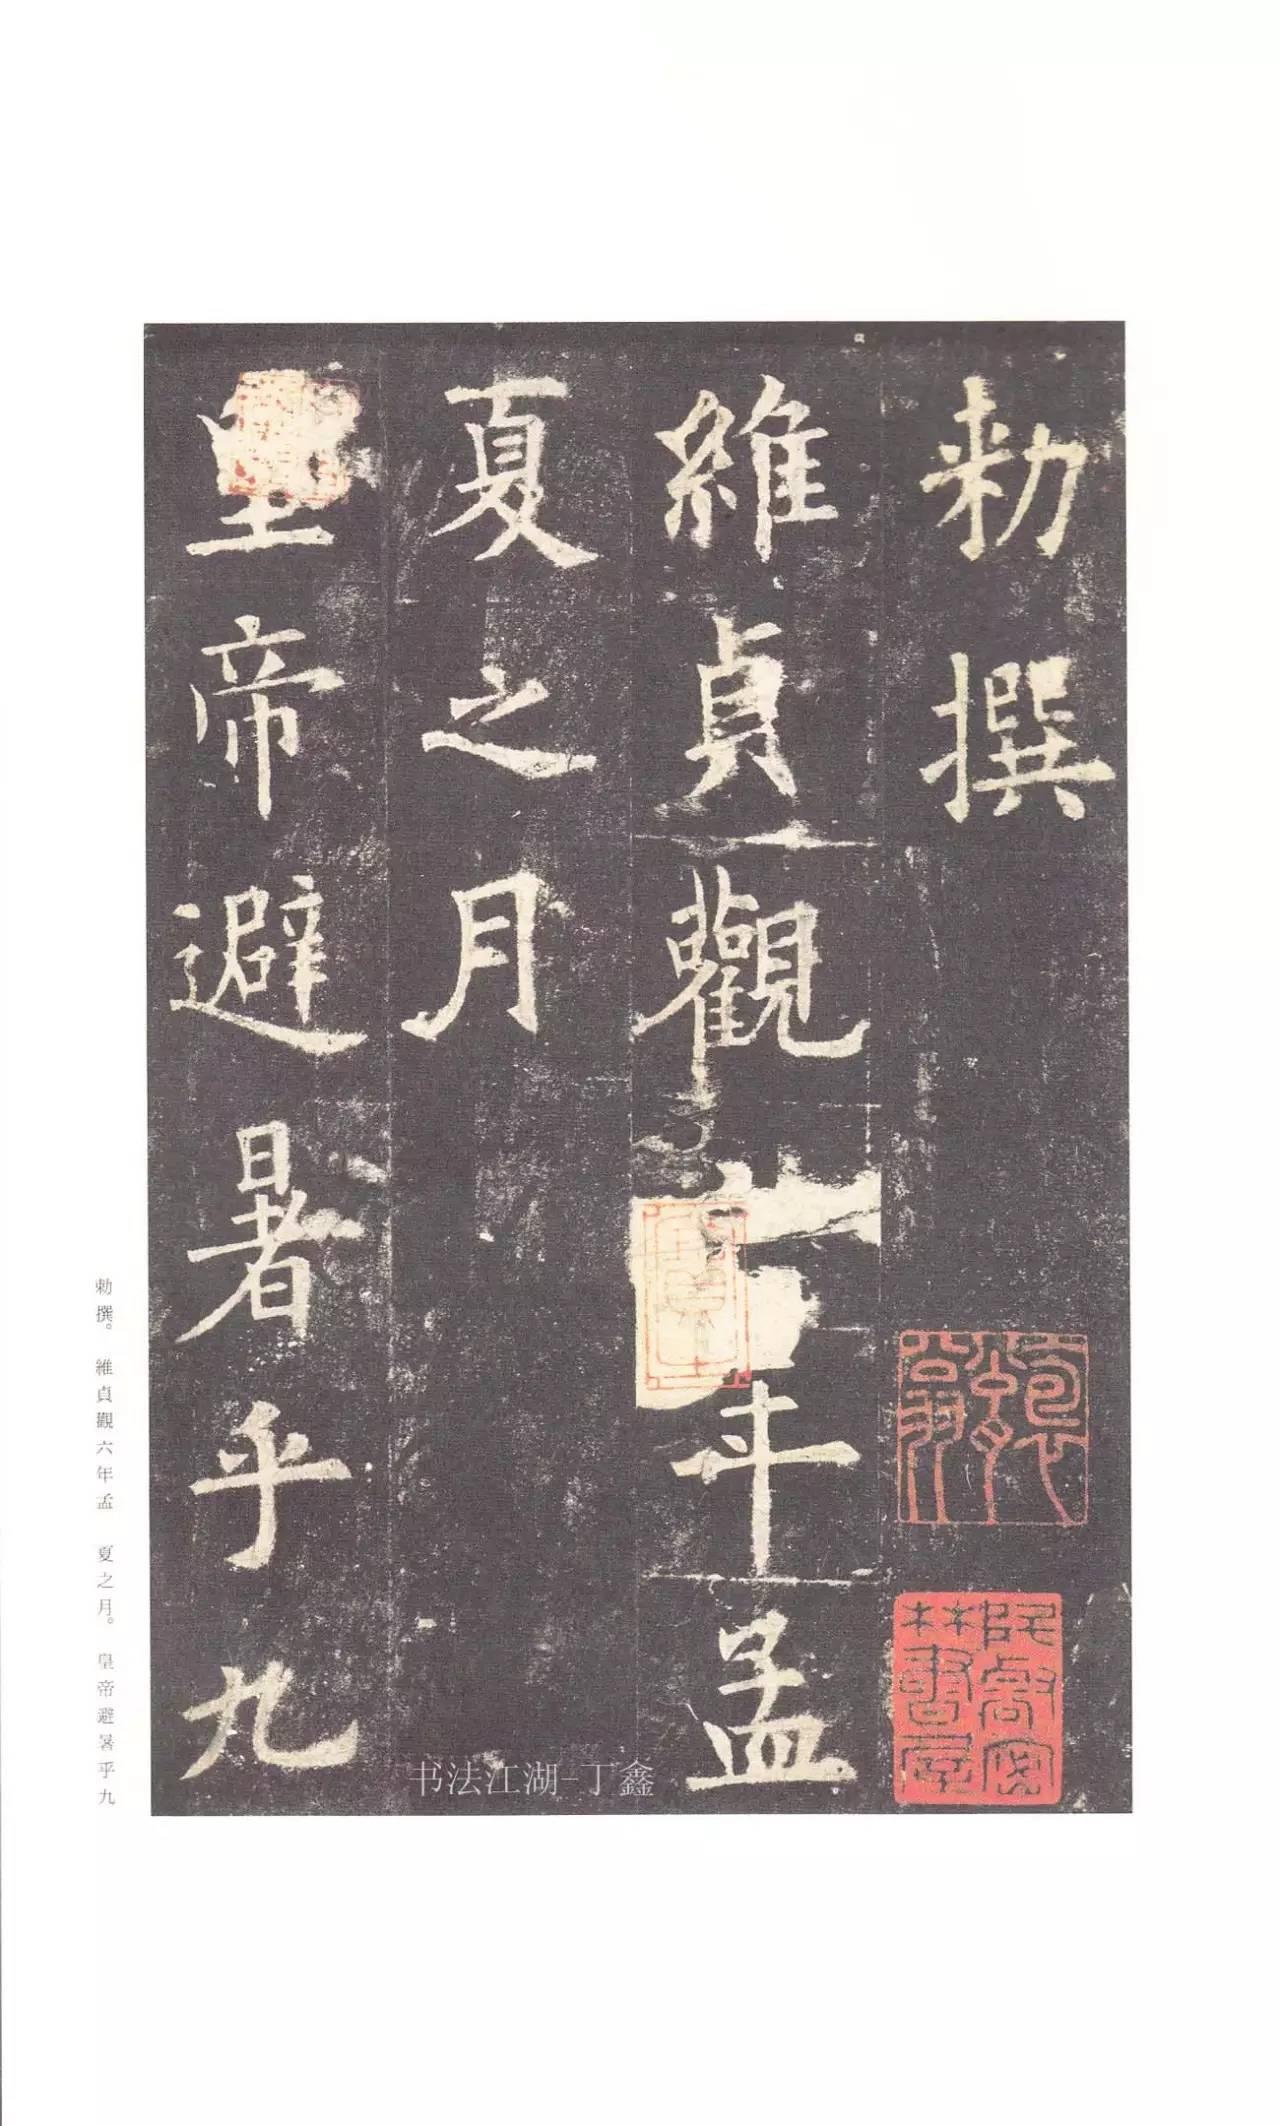 勑撰
維貞觀六年孟
夏之月
皇帝避暑乎九
勑撰。 維貞觀六年孟 夏之月。 皇帝避暑乎九
书法江湖-丁鑫